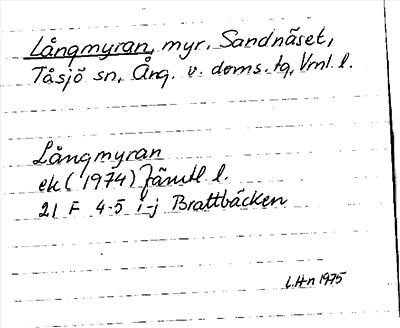 Långmyran, myr. Sandnäset,
Tåsjö sn, Ång. v. doms. tg, Vnl. l.
Långmyran
ek (1974) Jämtl l.
21 F 4-5 i-j Brattbäcken
L.H-n 1975